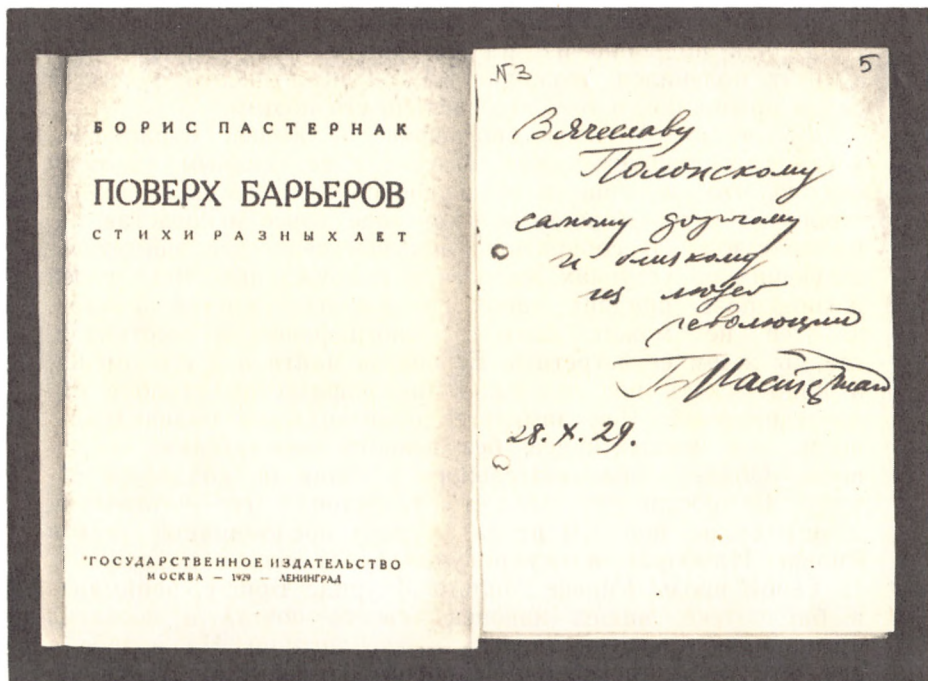 БОРИС ПАСТЕРНАК
ПОВЕРХ БАРЬЕРОВ
СТИХИ РАЗНЫХ ЛЕТ
ГОСУДАРСТВЕННОЕ ИЗДАТЕЛЬСТВО
МОСКВА — 1929 — ЛЕНИНГРАД
№3
5
Вячеславу
Полонскому
самому дорогому
и близкому
из людей
революции
Б Пастернак
28. X. 29.